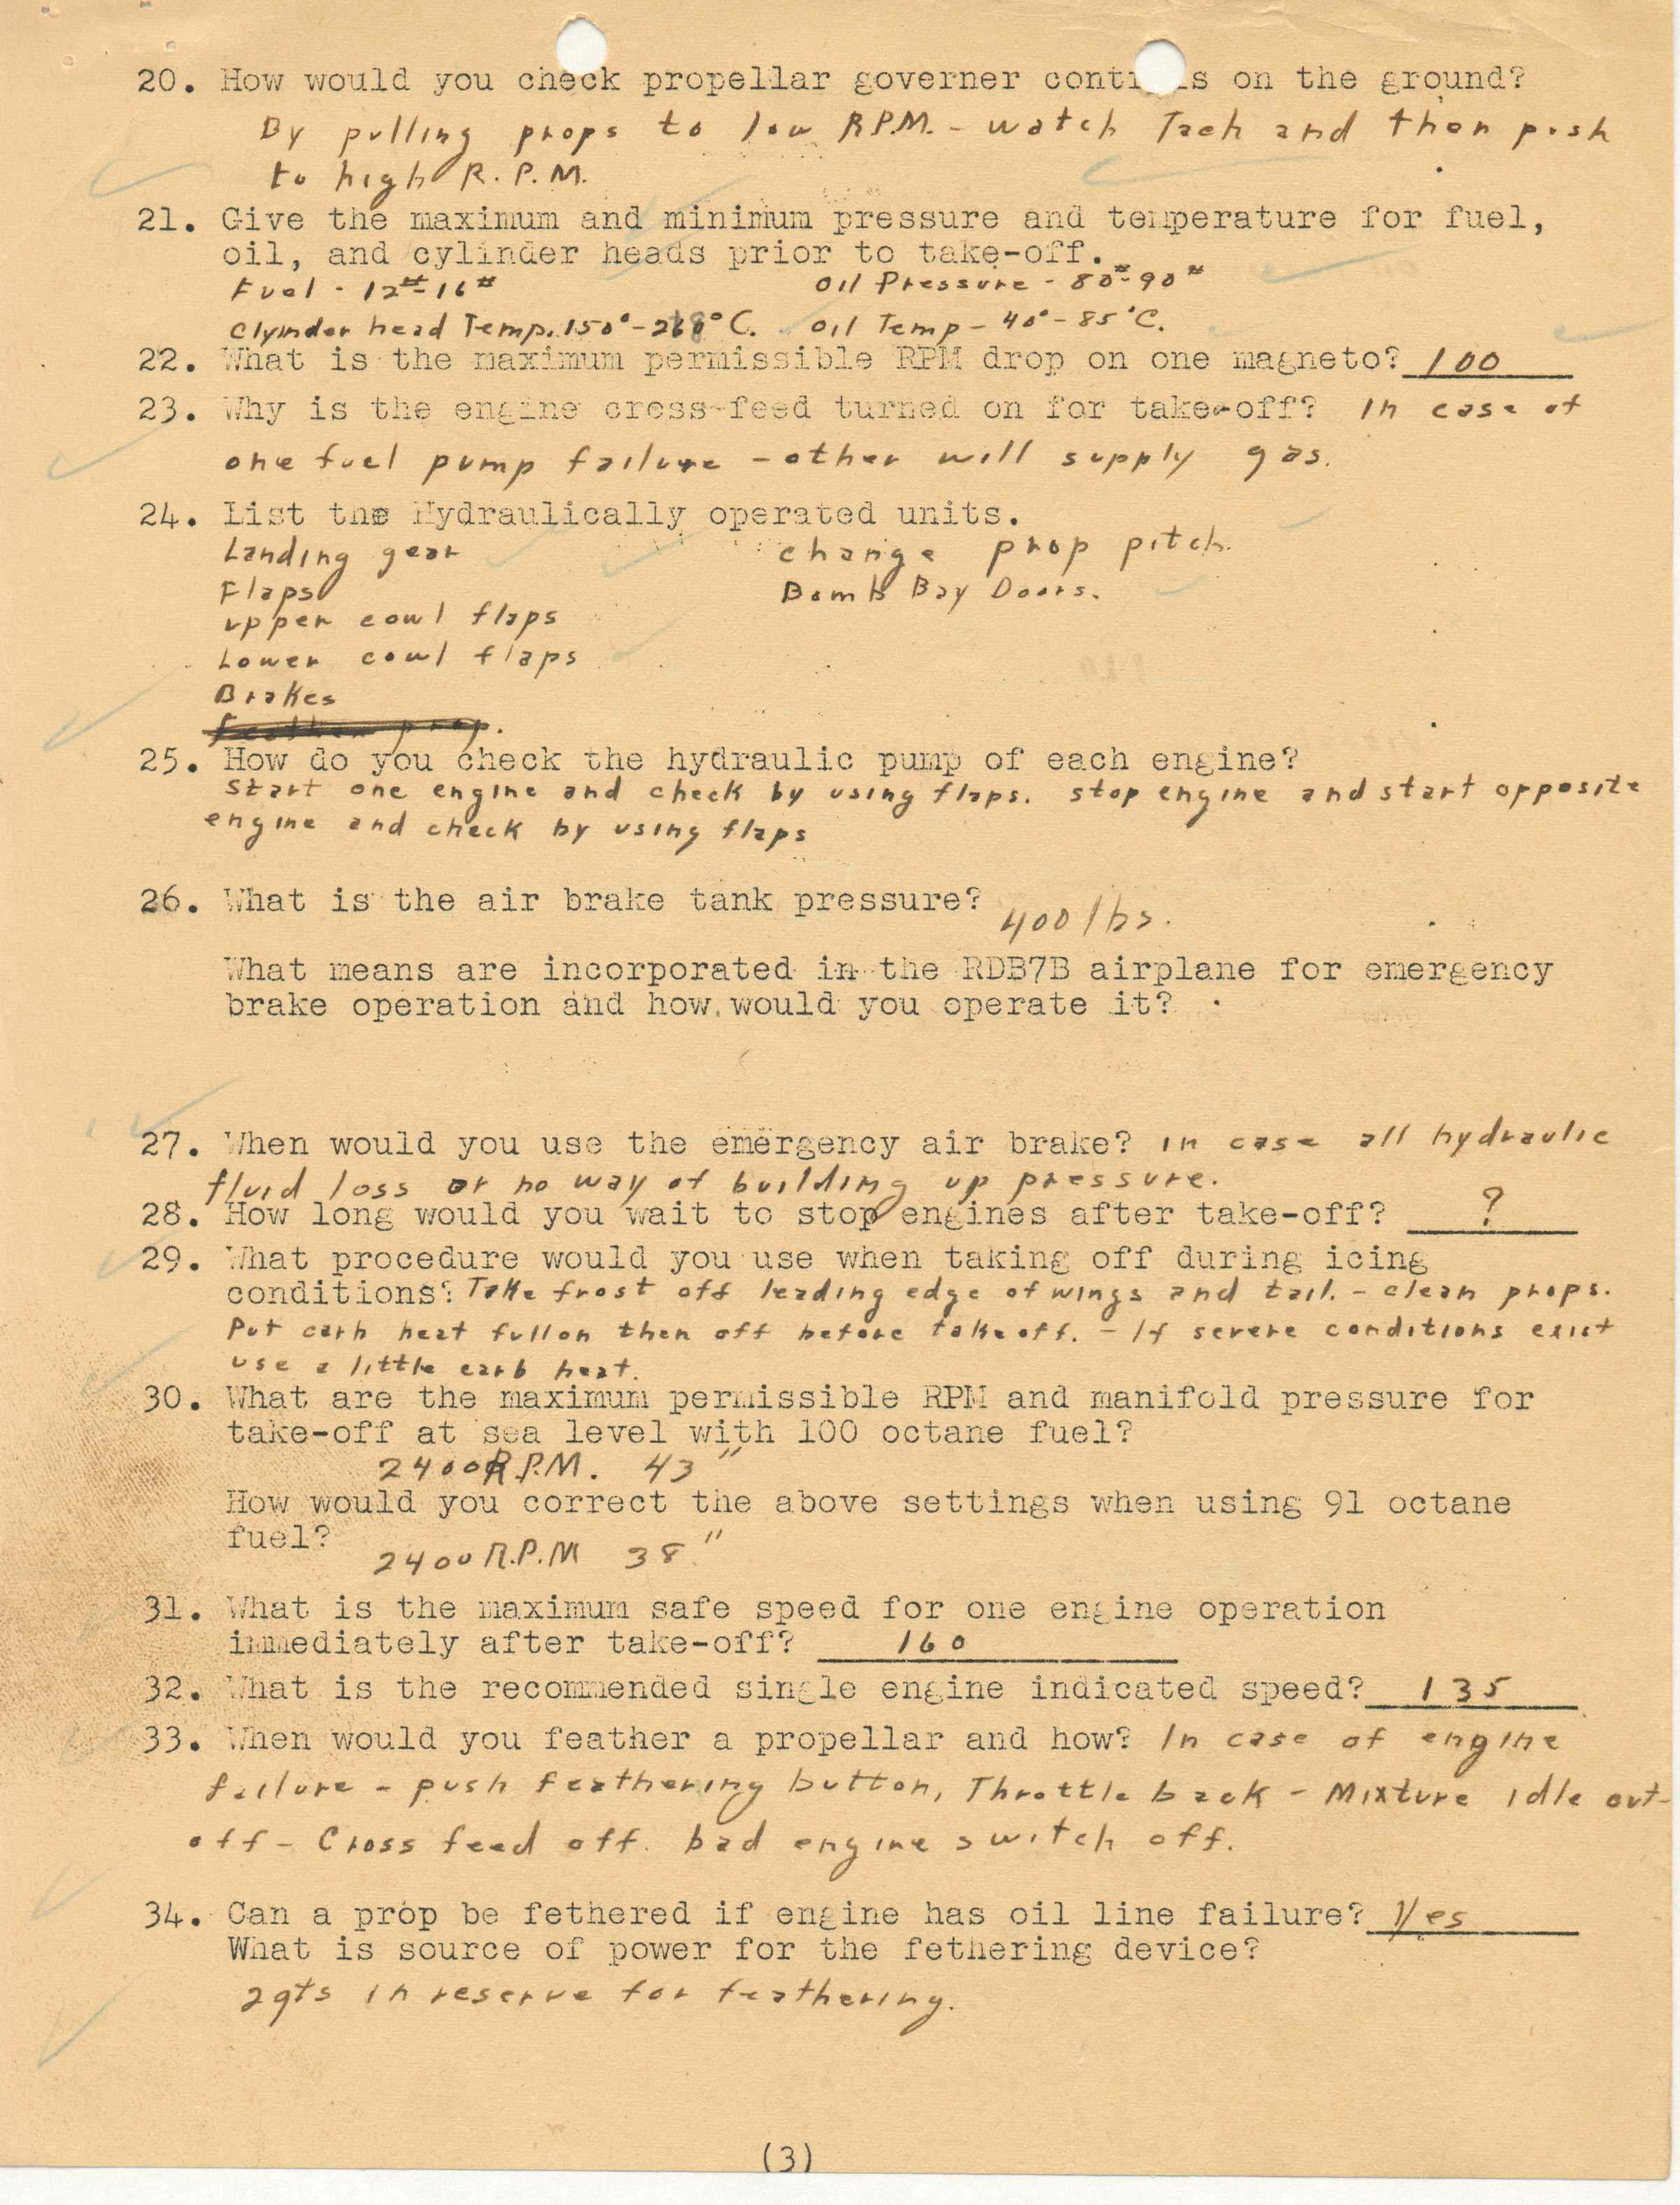 20. How would you check propellar governer controls on the ground?
By pulling props to low R.P.M. - watch Tach and then push
to high R.P.M.
21. Give the maximum and minimum pressure and temperature for fuel,
oil, and cylinder heads prior to take-off.
Fuel - 12#-16# Oil Pressure - 80#-90#
Clyinder head Temp. 150°- °C. Oil Temp - 40°-85°C.
22. What is the maximum permissible RPM drop on one magneto? 100
23. Why is the engine cross-feed turned on for take-off? In case of
one fuel pump failure - other will supply gas.
24. List the Hydraulically operated units.
Landing gear change prop pitch.
Flaps Bomb Bay Doors.
upper cowl flaps
Lower cowl flaps
Brakes
feather prop.
25. How do you check the hydraulic pump of each engine?
Start one engine and check by using flaps. stop engine and start opposite
engine and check by using flaps
26. What is the air brake tank pressure? 400 lbs.
What means are incorporated in the RDB7B airplane for emergency
brake operation and how would you operate it?
27. When would you use the emergency air brake? in case all hydraulic
fluid loss or no way of building up pressure.
28. How long would you wait to stop engines after take-off? ?
29. What procedure would you use when taking off during icing
conditions? Take frost off leading edge of wings and tail. - clean props.
Put carb heat full on then off before take off. - If severe conditions exist
use a little carb heat.
30. What are the maximum permissible RPM and manifold pressure for
take-off at sea level with 100 octane fuel?
2400 R.P.M. 43"
How would you correct the above settings when using 91 octane
fuel?
2400 R.P.M 38"
31. What is the maximum safe speed for one engine operation
immediately after take-off? 160
32. What is the recommended single engine indicated speed? 135
33. When would you feather a propellar and how? In case of engine
failure - push feathering button, Throttle back - Mixture idle cut-
off - Cross feed off. bad engine switch off.
34. Can a prop be fethered if engine has oil line failure? Yes
What is source of power for the fethering device?
2 qts in reserve for feathering.
(3)